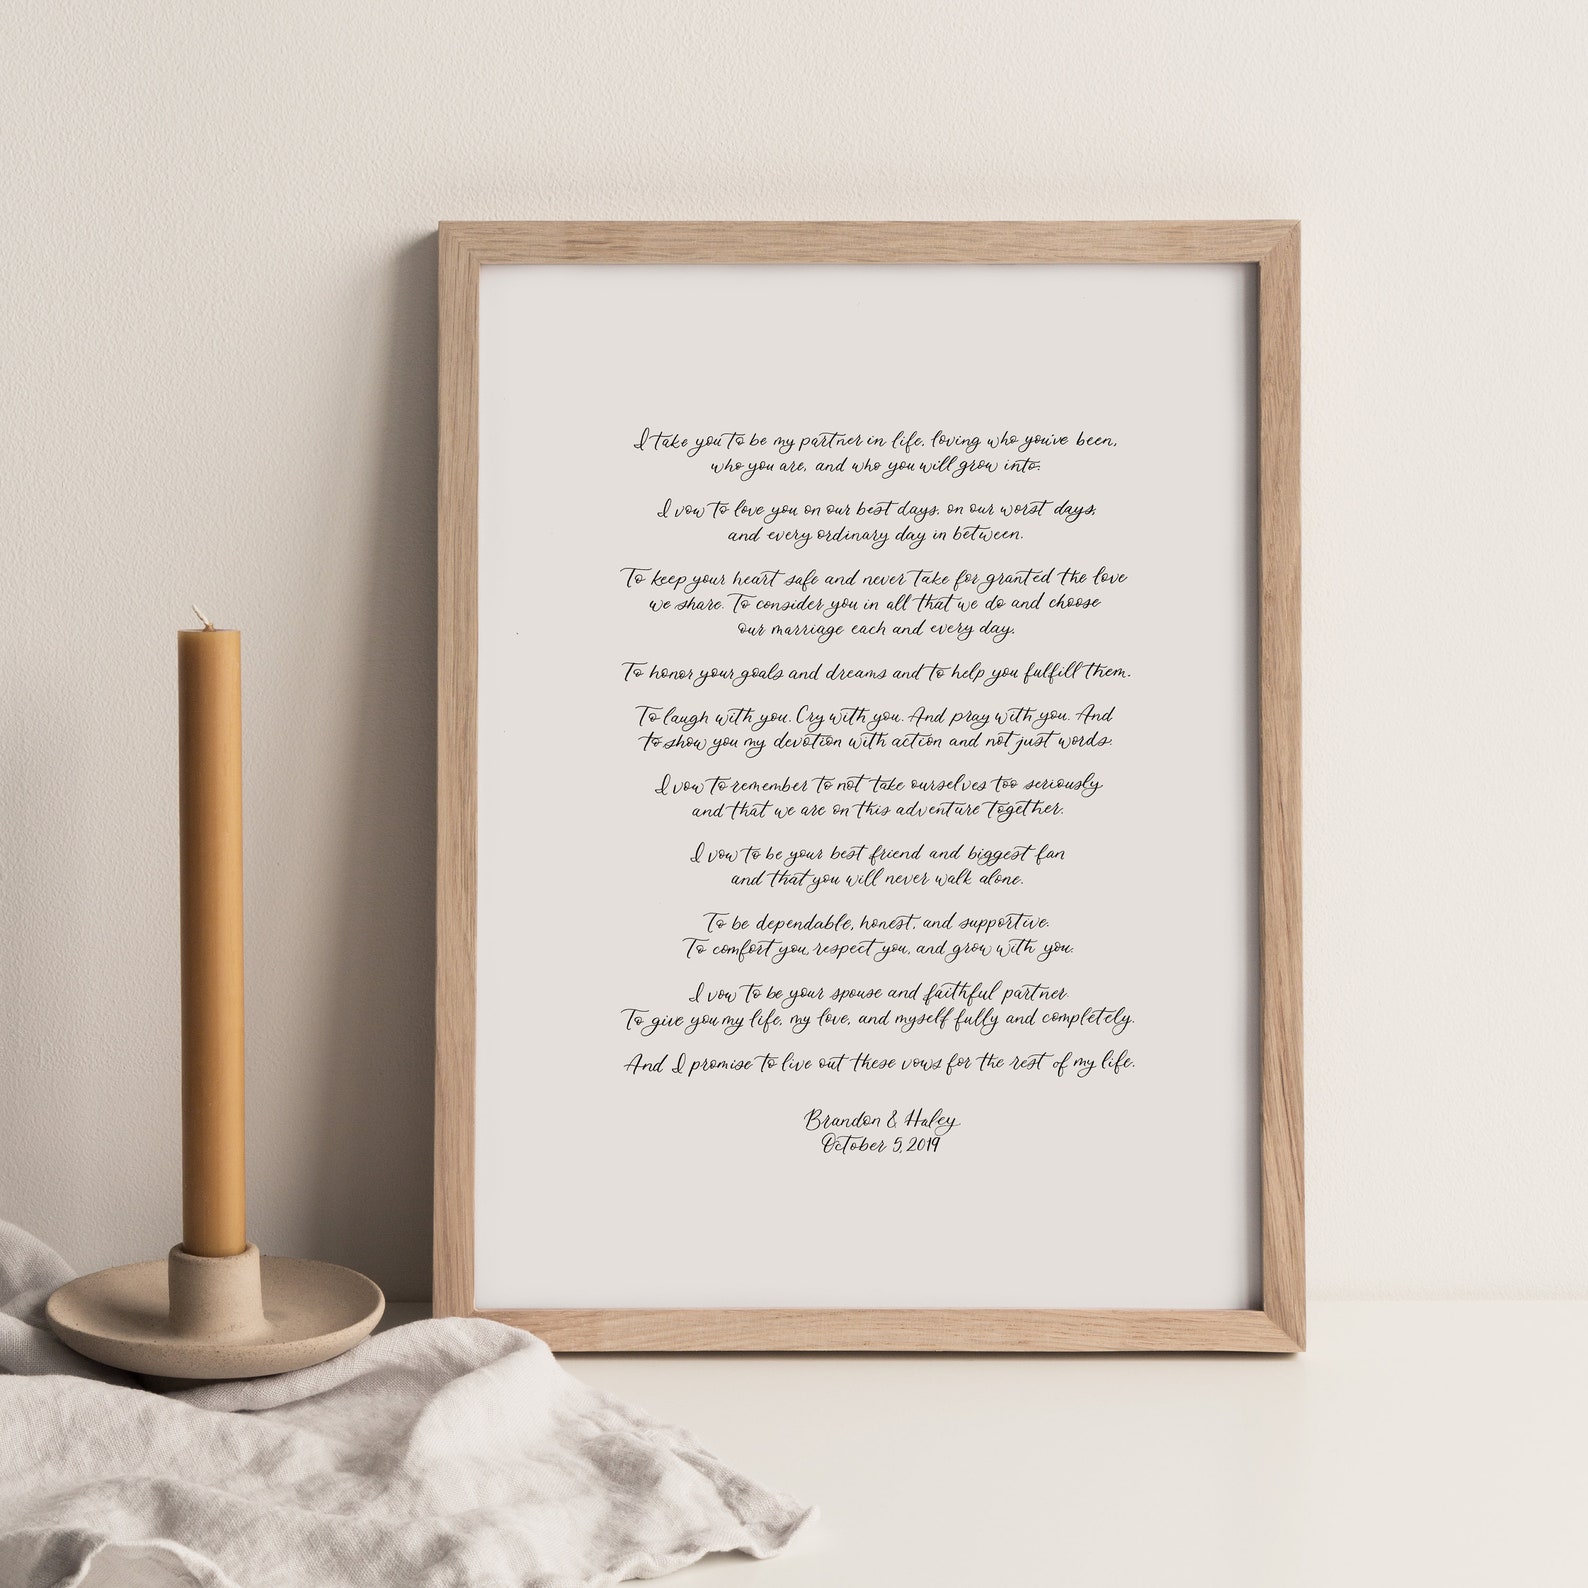 I take you to be my partner in life, loving who you've been,
who you are, and who you will grow into.
I vow to love you on our best days, on our worst days,
and every ordinary day in between.
To keep your heart safe and never take for granted the love
we share. To consider you in all that we do and choose
our marriage each and every day.
To honor your goals and dreams and to help you fulfill them.
To laugh with you. Cry with you. And pray with you. And
to show you my devotion with action and not just words.
I vow to remember to not take ourselves too seriously
and that we are on this adventure together.
I vow to be your best friend and biggest fan
and that you will never walk alone.
To be dependable, honest, and supportive.
To comfort you, respect you, and grow with you.
I vow to be your spouse and faithful partner.
To give you my life, my love, and myself fully and completely.
And I promise to live out these vows for the rest of my life.
Brandon & Haley
October 5, 2019